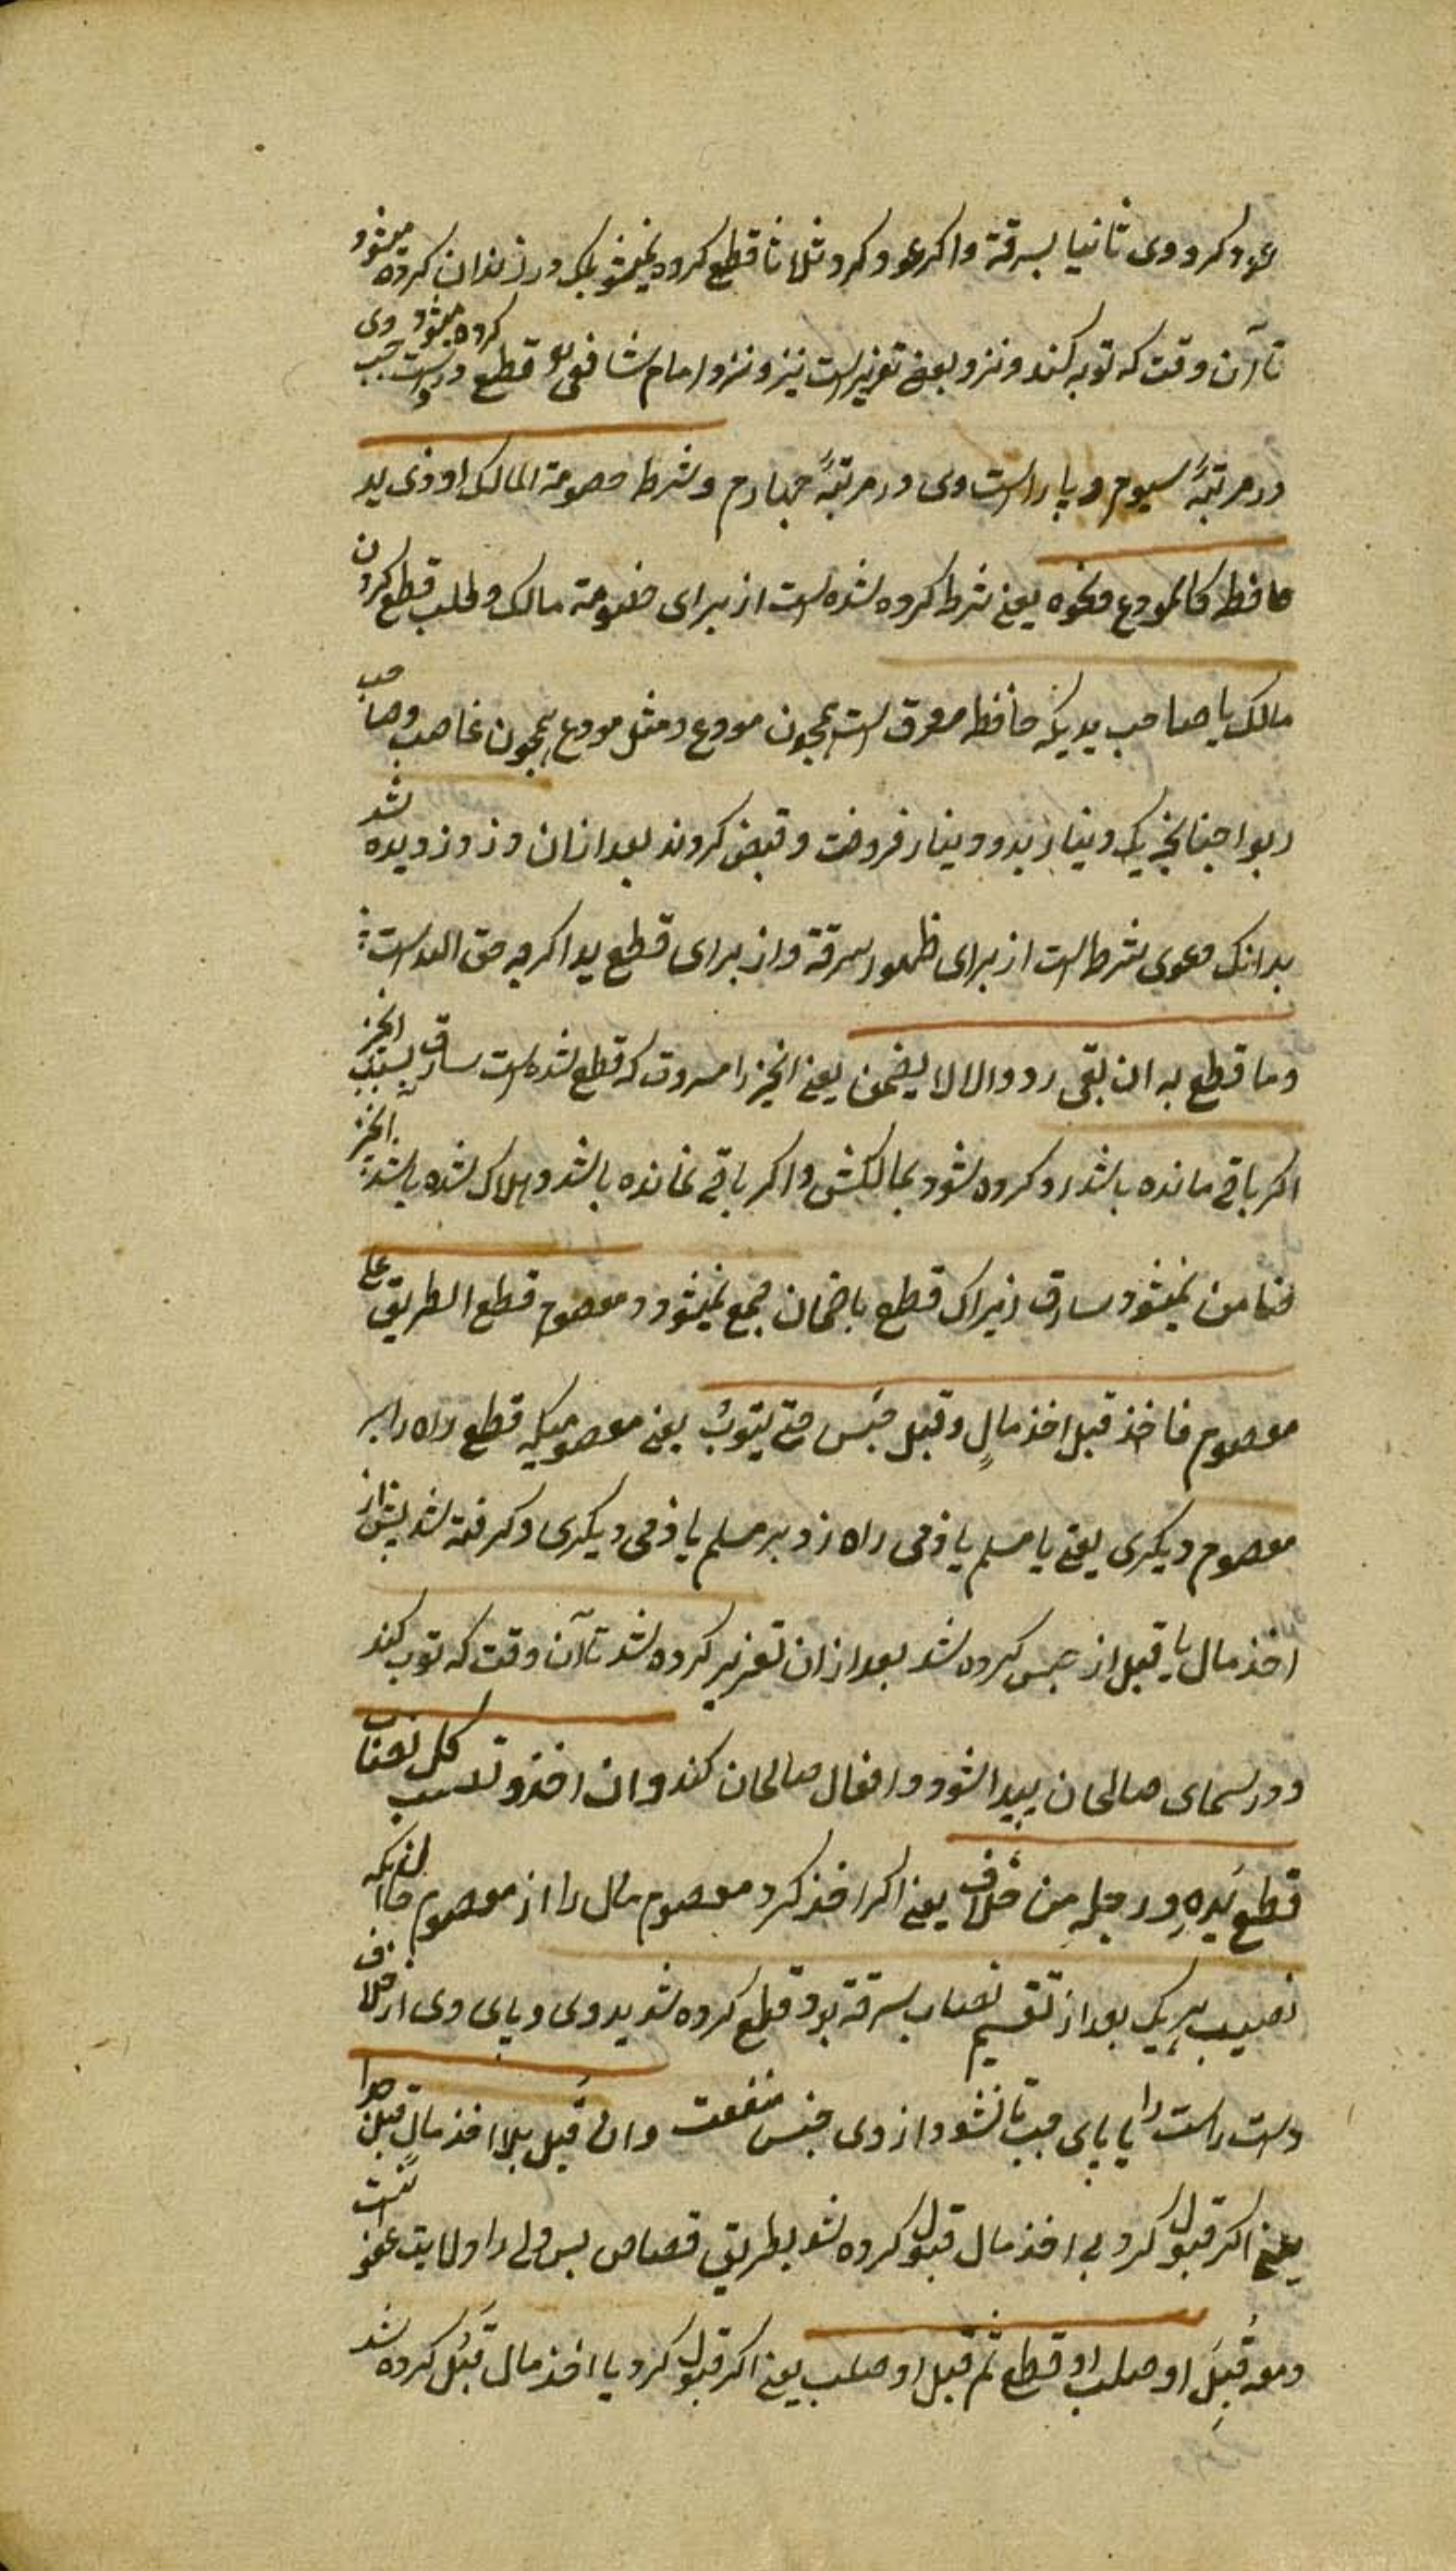 عود کرد وی ثانیا بسرقة واکر عود کرد ثلاثا قطع کرده نمیشود بلک در زندان کرده میشود
تا آن وقت که توبه کند ونزد بعضے تعزیر است نیز ونزد امام شافعی قطع کرده میشود دست چپ وی
در مرتبهٔ سیوم وپا راست وی در مرتبهٔ چهارم وشرط خصومة المالک او ذی ید
حافظ کالمودع ونحوه یعنے شرط کرده شده است از برای خصومة مالک وطلب قطع کردن
مالک یا صاحب یدیکه حافظ مسروق است همچون مودع ومثل مودع همچون غاصب وصاحب
ربوا چنانچه یک دینار بدو دینار فروخت وقبض کردند بعد ازان دزد دزدیده شد
بدانک دعوی شرط است از برای ظهور سرقة واز برای قطع ید اکرچه حق الله است
وما قطع به ان بقی رد والا لا یضمن یعنے انچیز را مسروق که قطع شده است سارق بسبب انچیز
اکر باقے مانده باشد رد کرده شود بمالکش واکر باقے نمانده باشد وهلاک شده باشد انچیز
ضامن نمیشود سارق زیراک قطع با ضمان جمع نمیشود ومعصوم قطع الطریق علے
معصوم فاخذ قبل اخذ مالٍ وقتل حبس حتے یتوب یعنے معصومیکه قطع راه را بر
معصوم دیکری یعنے یا مسلم یا ذمی راه زد بر مسلم یا ذمی دیکری وکرفته شد پیش از
اخذ مال یا قبل از حبس کرده شد بعد ازان تعزیر کرده شد تا آن وقت که توبه کند
ودر سیمای صالحان پیدا شود وافعال صالحان کند وان اخذ ونصیب کل نصاب
قطع یده ورجله من خلاف یعنے اکر اخذ کرد معصوم مال را از معصوم حال انکه
نصیب هر یک بعد از تقسیم نصاب سرقه بود قطع کرده شد ید وی وپای وی از خلاف
دست راست را با پای چپ تا نشود از وی جنس منفعت وان قتل بلا اخذ مال قتل حدا
یعنے اکر قتل کرد بے اخذ مال قتل کرده شد بطریق قصاص پس ولے را ولایت عفو نیست
ومعه قتل او صلب او قطع ثم قتل او صلب یعنے اکر قتل کرد با اخذ مال قتل کرده شد